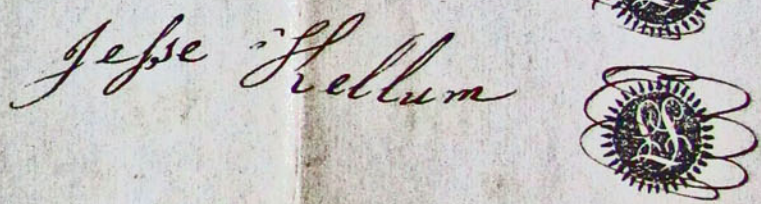 Jesse Kellum
LS